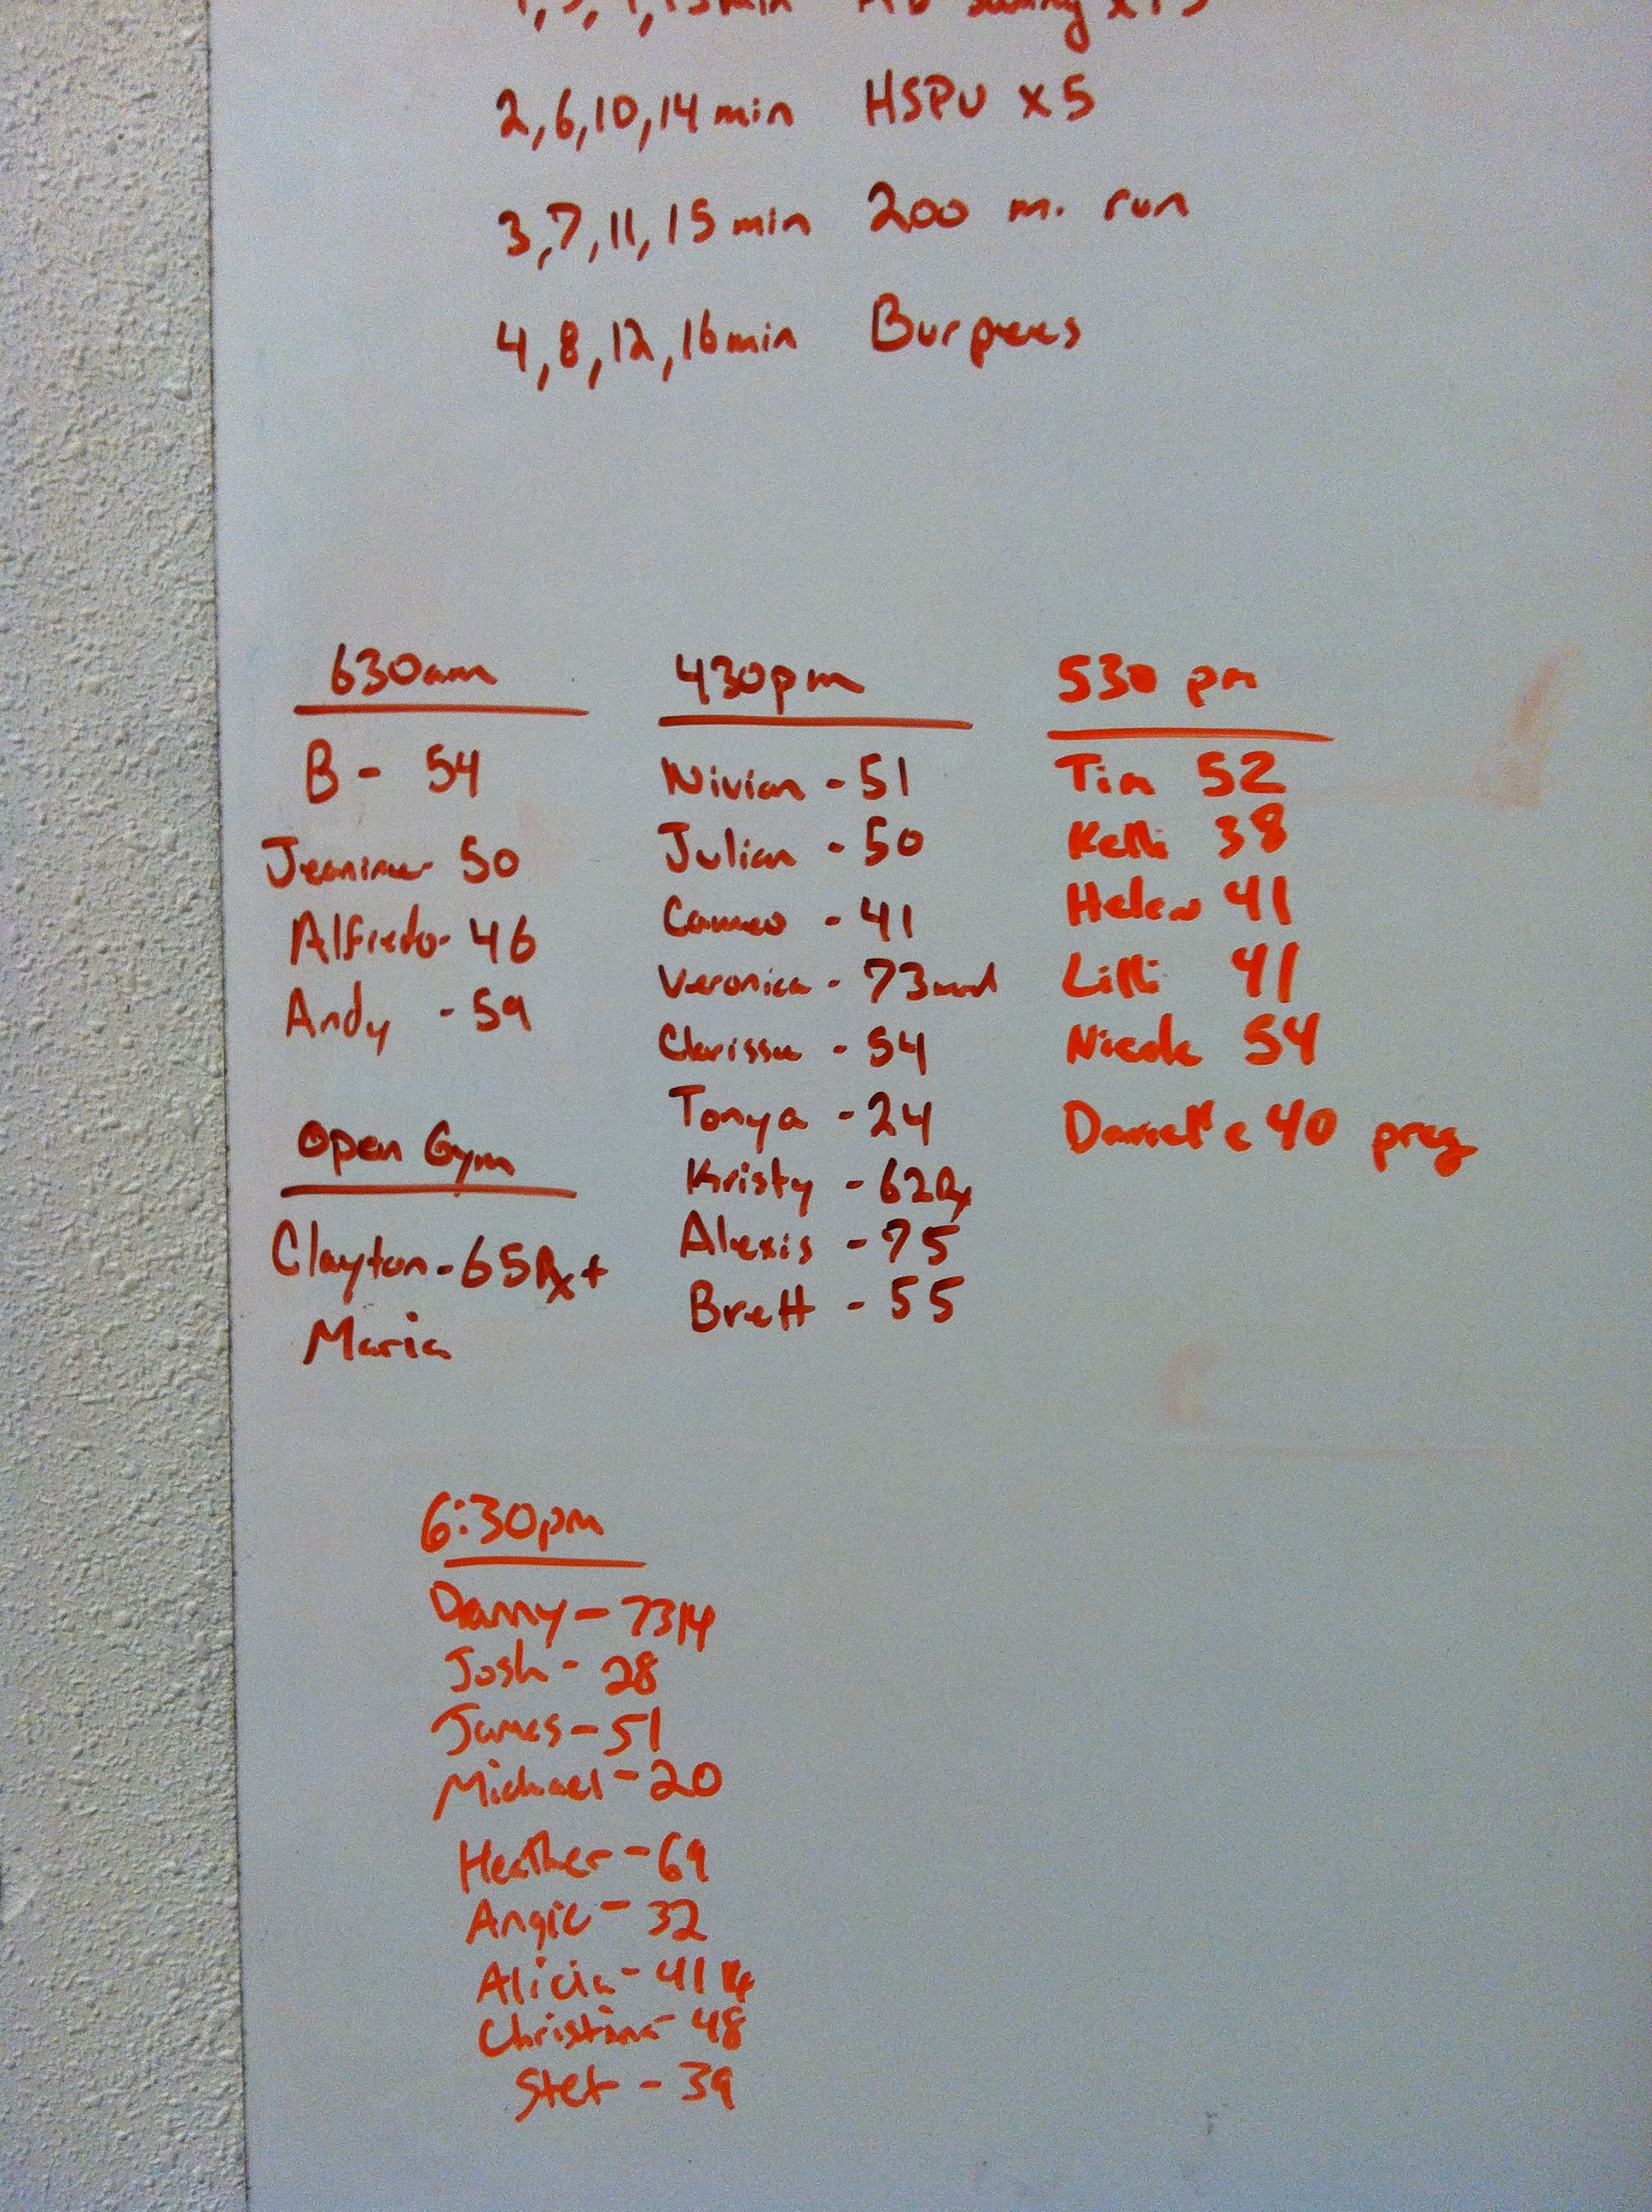 2,6,10,14 min HSPU x5
3,7,11,15 min 200 m. run
4,8,12,16 min Burpees
630am
B - 54
Jeanine 50
Alfredo - 46
Andy - 59
Open Gym
Clayton - 65 Rx +
Maria
430pm
Nivian - 51
Julian - 50
Cameo - 41
Veronica - 73 mod
Clarissa - 54
Tonya - 24
Kristy - 62 Rx
Alexis - 75
Brett - 55
530 pm
Tim 52
Kelli 38
Helen 41
Lilli 41
Nicole 54
Danielle 40 preg
6:30pm
Danny - 73
Josh - 28
James - 51
Michael - 20
Heather - 69
Angie - 32
Alicia - 41
Christina 48
Stef - 39